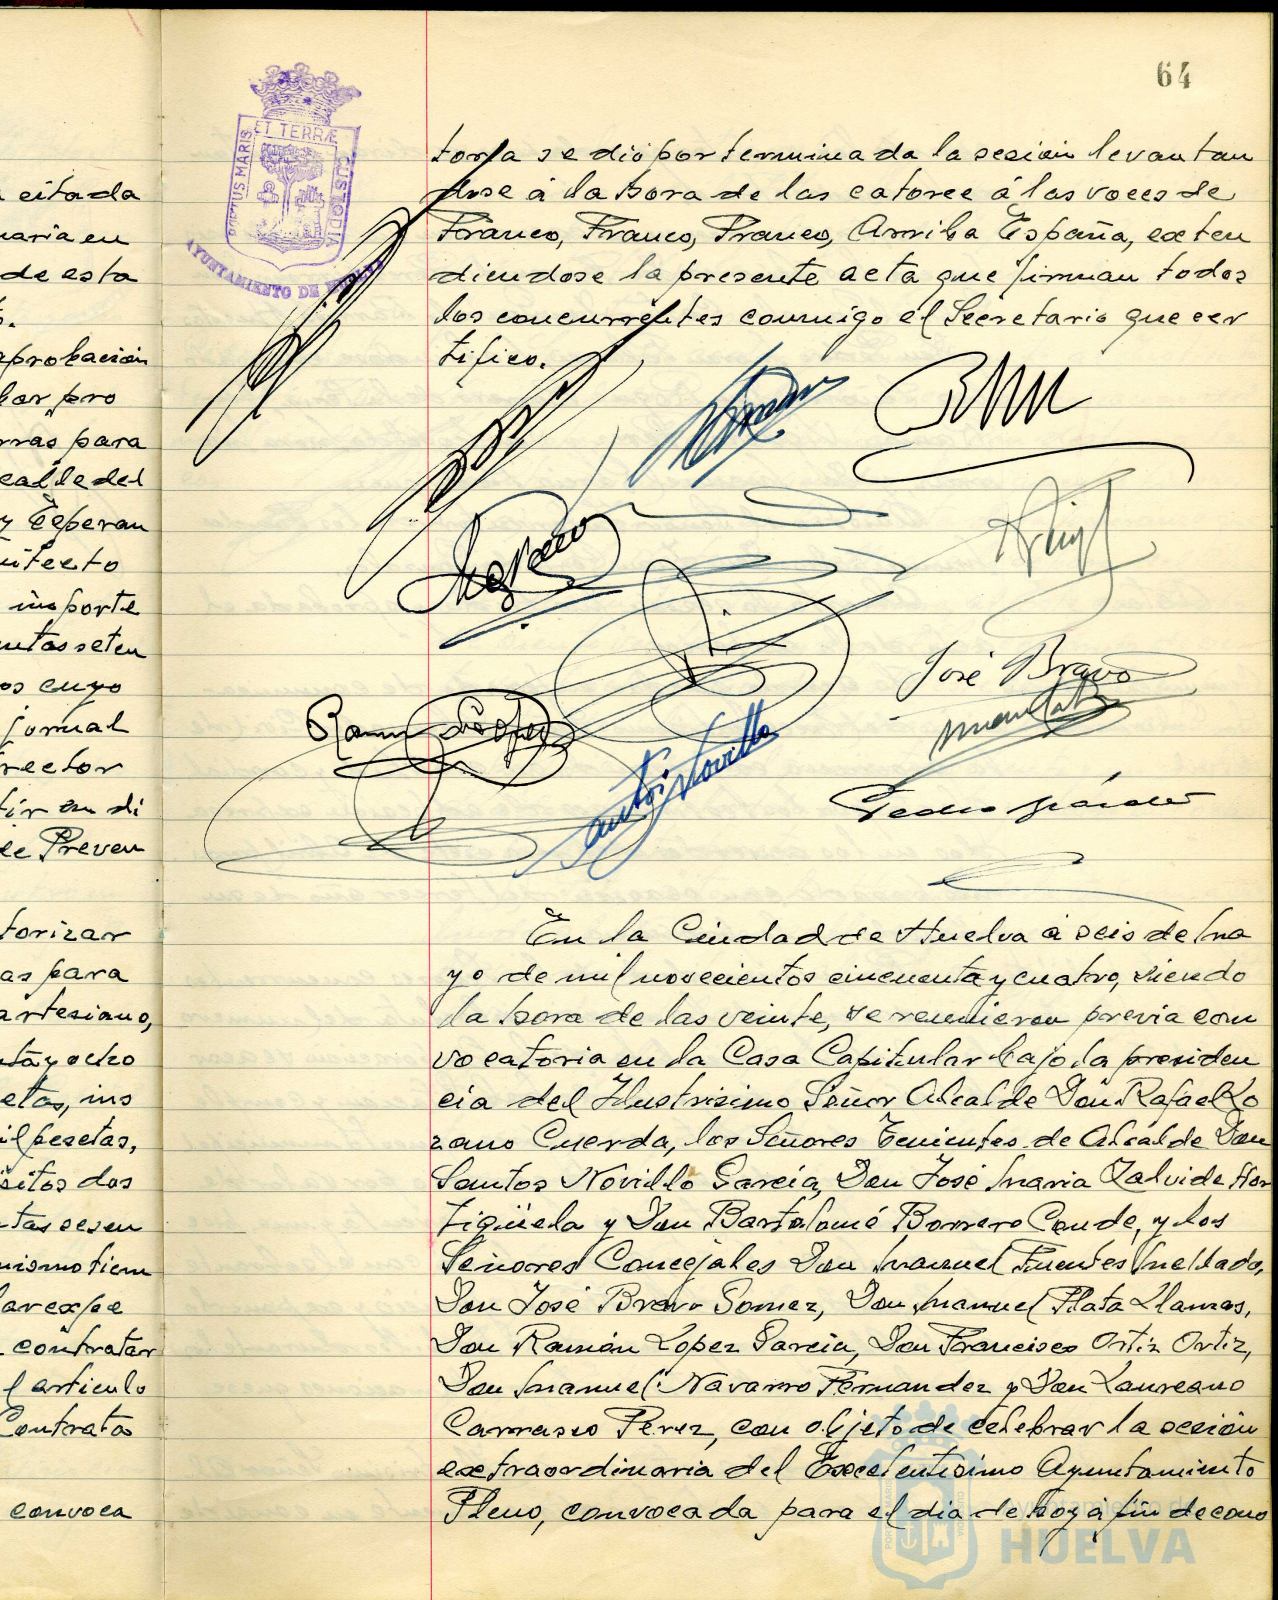 64
PORTUS MARIS
ET TERRÆ
CUSTODIA
AYUNTAMIENTO DE HUELVA
citada
naria en
de esta
aprobacion
pro
rras para
calle del
y Esperan
uitecto
importe
untas seten
os cuyo
jornal
rector
tir en di
de Preven
torizar
as para
artesiano,
nta y ocho
etas, ins
il pesetas,
sitos dos
tas sesen
mismo tiem
lar expe
contratar
l articulo
Contratos
convoca
toria se dió por terminada la sesion levantan
dose á la hora de las catorce á las voces de
Franco, Franco, Franco, Arriba España, exten
diendose la presente acta que firman todos
los concurrentes conmigo el Secretario que cer
tifico.
José Bravo
Ramon Lopez
Pedro
En la Ciudad de Huelva á seis de Ma
yo de mil novecientos cincuenta y cuatro, siendo
la hora de las veinte, se reunieron previa con
vocatoria en la Casa Capitular bajo la presiden
cia del Ilustrisimo Señor Alcalde Don Rafael Lo
zano Cuerda, los Señores Tenientes de Alcalde Don
Santos Novillo Garcia, Don José Maria Zalvide Hor
tigüela y Don Bartolomé Borrero Conde, y los
Señores Concejales Don Manuel Fuentes Mellado,
Don José Bravo Gomez, Don Manuel Plata Llamas,
Don Ramón Lopez Garcia, Don Francisco Ortiz Ortiz,
Don Manuel Navarro Fernandez y Don Laureano
Carrasco Perez, con objeto de celebrar la sesión
extraordinaria del Excelentisimo Ayuntamiento
Pleno, convocada para el dia de hoy á fin de cono
Ayuntamiento de
HUELVA